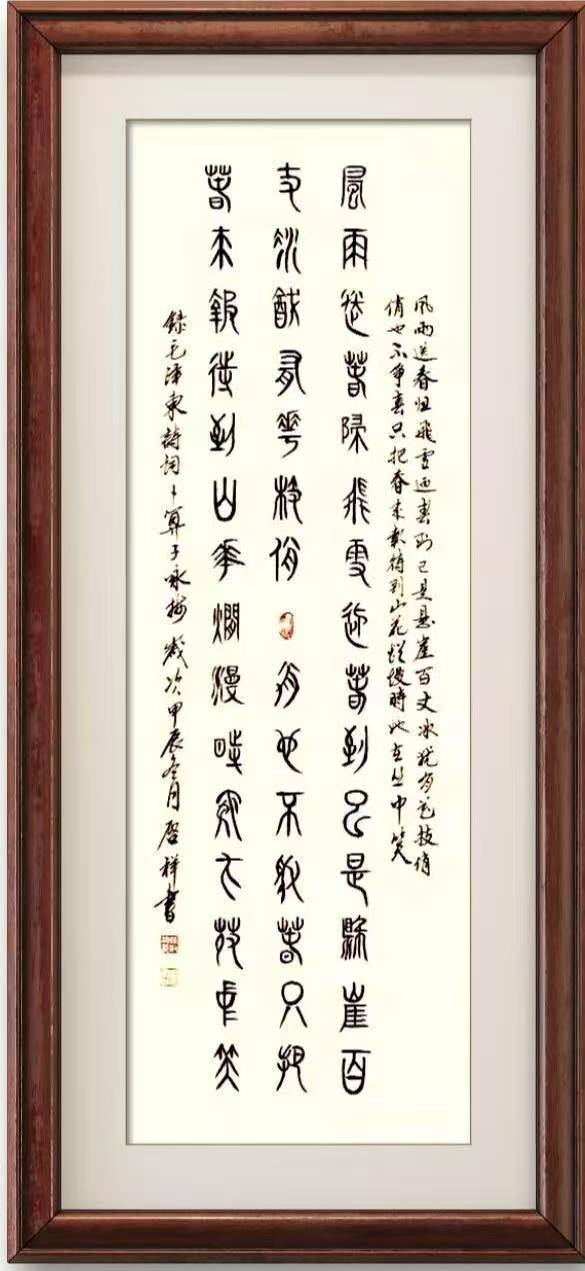 风雨送春归飛雪迎春到已是悬崖百丈冰犹有花枝俏
俏也不争春只把春来報待到山花烂漫時她在丛中笑
風雨送春歸飛雪迎春到已是縣崖百
丈冰猷有華枝俏俏也不爭春只把
春來報待到山華爛漫時她在叢中笑
錄毛泽東詩詞卜算子咏梅 歲次甲辰冬月启祥書